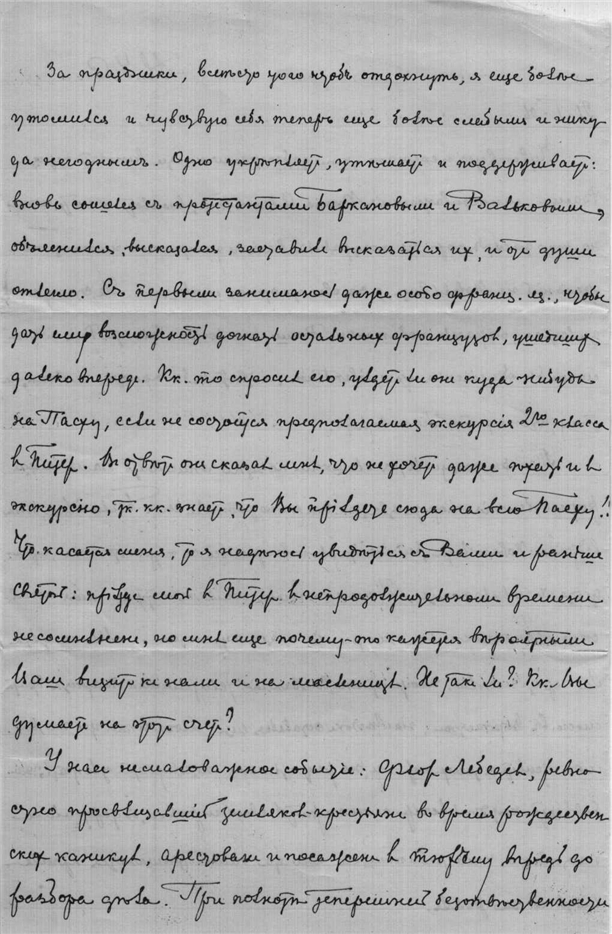 За праздники, вместо того чтобъ отдохнуть, я еще болѣе
утомился и чувствую себя теперь еще болѣе слабымъ и нику
да негоднымъ. Одно укрѣпляетъ, утѣшаетъ и поддерживаетъ:
вновь сошелся съ протестантами Баркановымъ и Вальковымъ,
объяснился, высказался, заставилъ высказаться ихъ, и отъ души
отлегло. Съ первымъ занимаюсь даже особо франц. яз., чтобы
дать ему возможность догнать остальныхъ французовъ, ушедшихъ
далеко впередъ. Кк.-то спросилъ его, уѣдетъ ли онъ куда-нибудь
на Пасху, если не состоится предполагаемая экскурсія 2го класса
въ Питеръ. Въ отвѣтъ онъ сказалъ мнѣ, что не хочетъ даже ѣхать и въ
экскурсію, т. кк. знаетъ, что Вы пріѣдете сюда на всю Пасху!!
Что касается меня, то я надѣюсь увидѣться съ Вами и раньше
Святой: пріѣздъ мой въ Питеръ въ непродолжительномъ времени
несомнѣненъ, но мнѣ еще почему-то кажется вѣроятнымъ
Вашъ визитъ къ намъ и на масленицѣ. Не такъ ли? Кк. Вы
думаете на этотъ счетъ?
У насъ немаловажное событіе: Ѳедоръ Лебедевъ, ревно
стно просвѣщавшій земляковъ-крестьянъ во время рождествен
скихъ каникулъ, арестованъ и посаженъ въ тюрьму впредь до
разбора дѣла. При полной теперешней безотвѣтственности